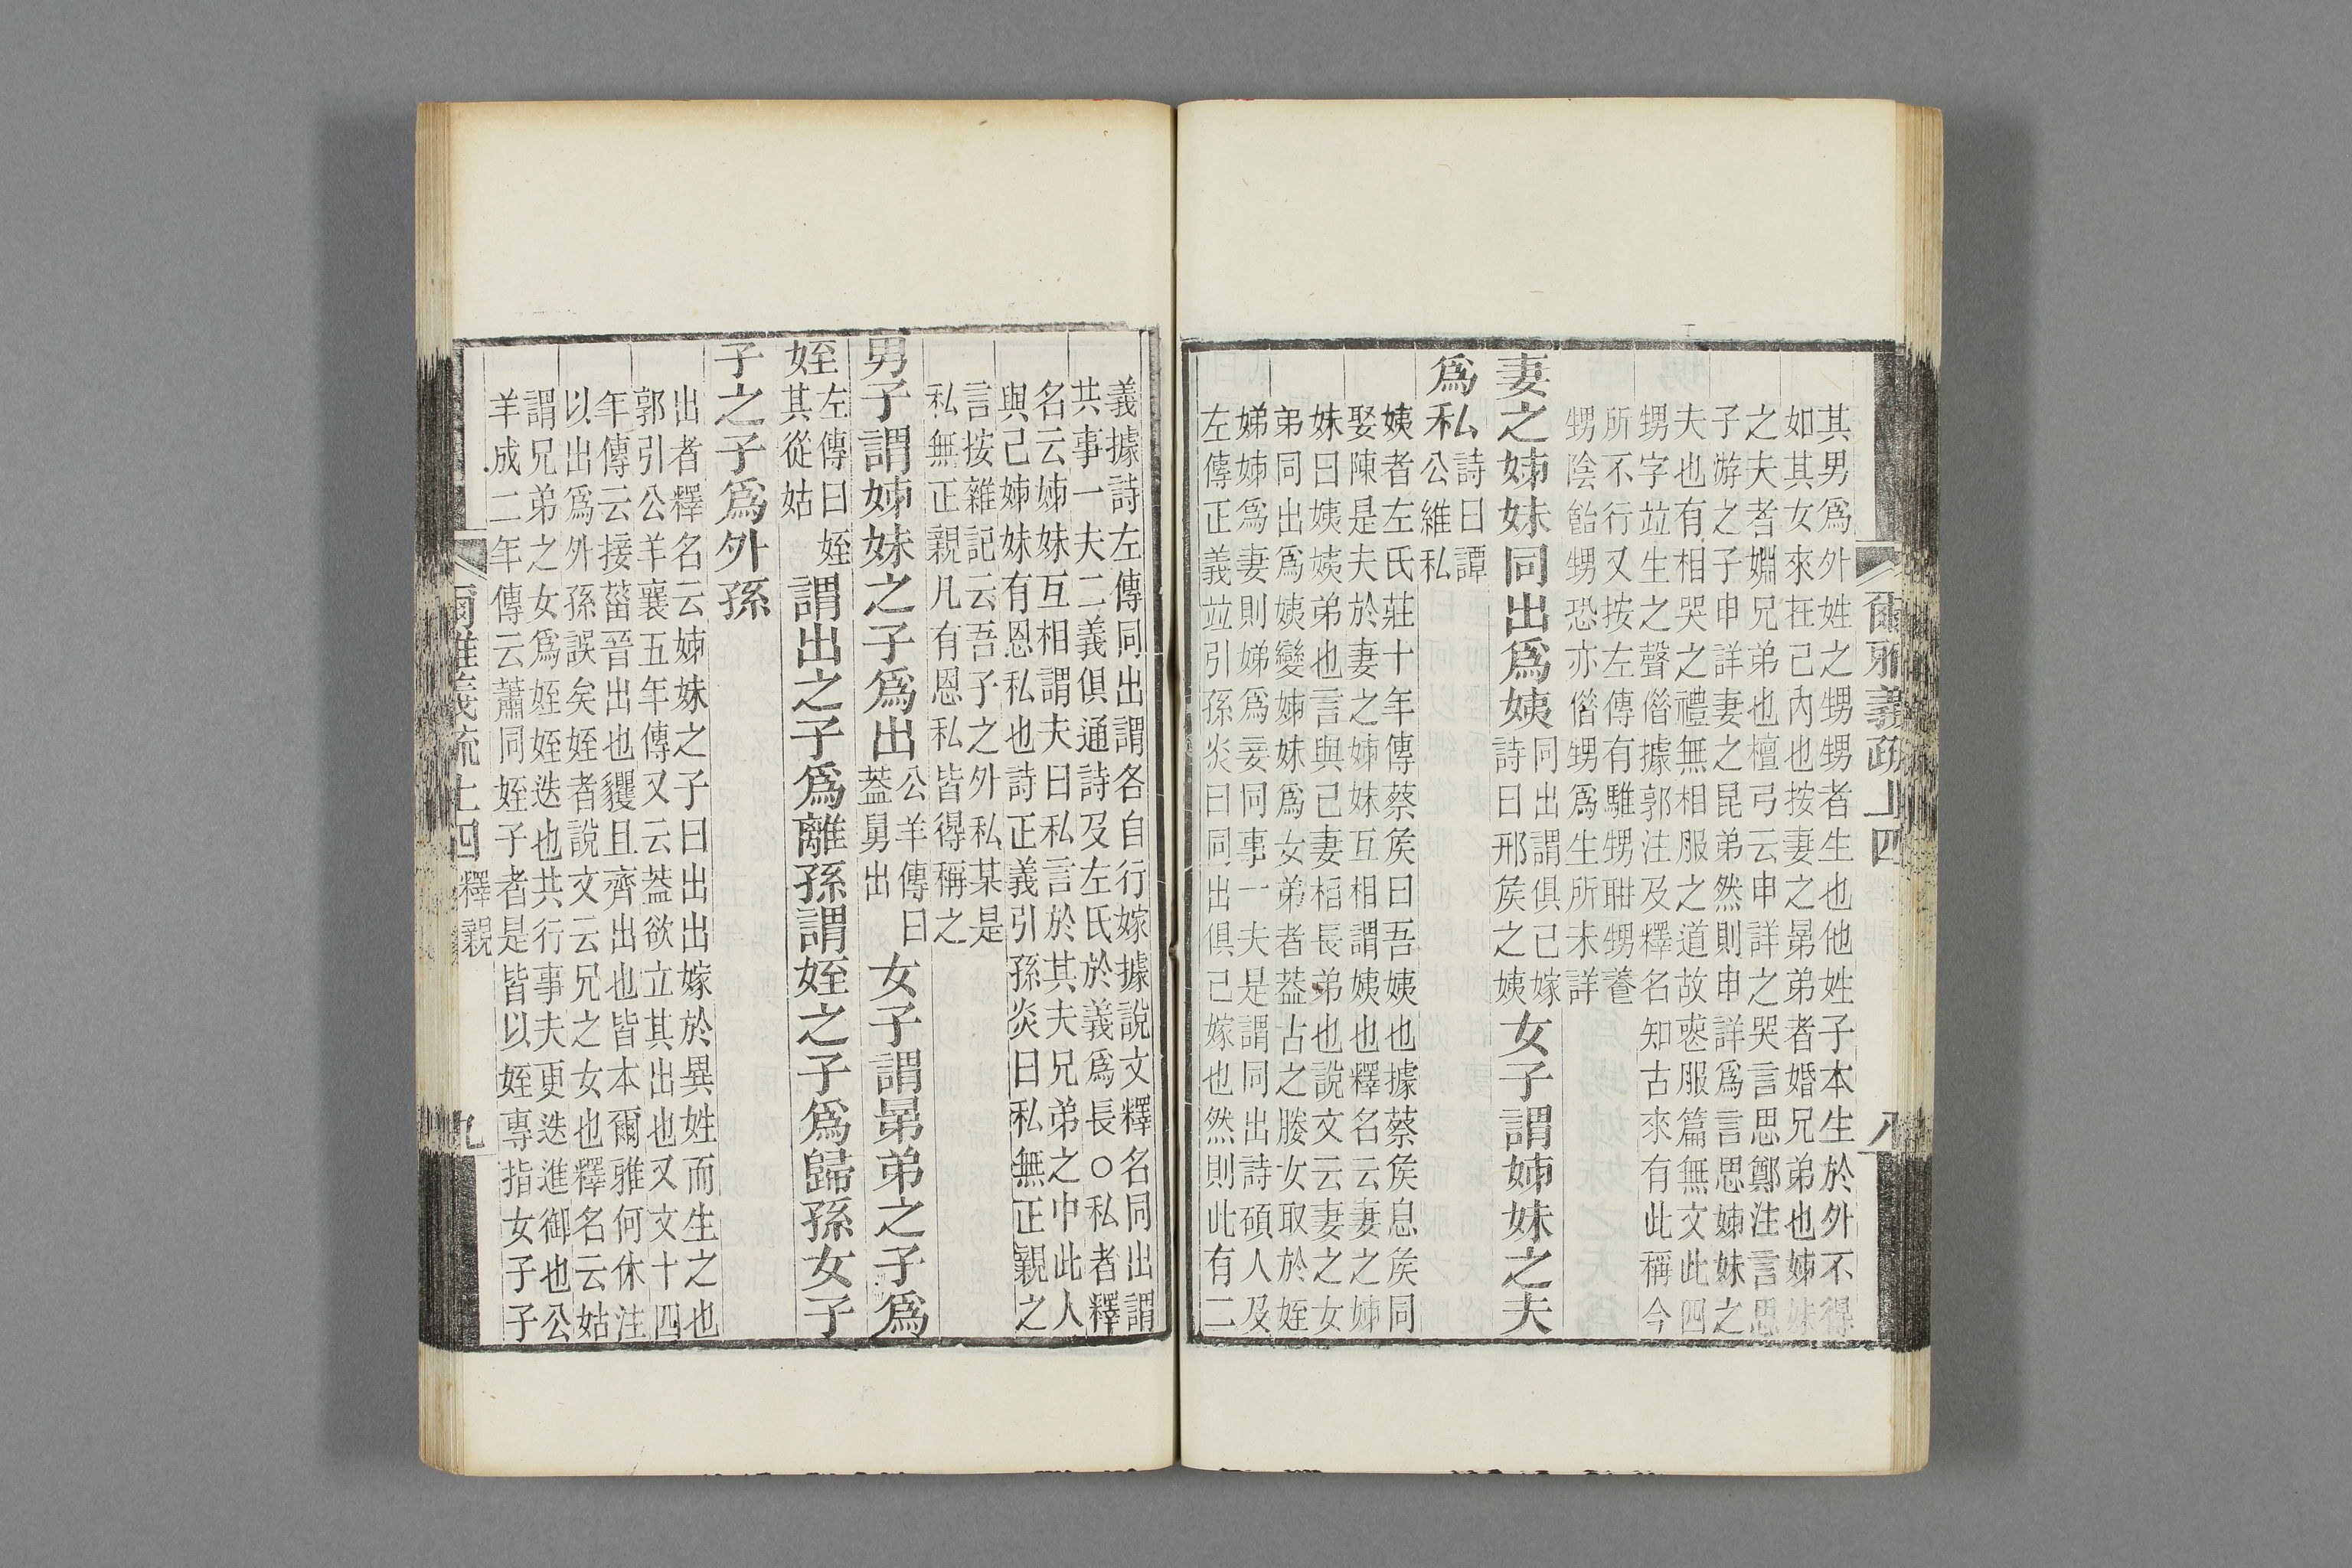 其男爲外姓之甥甥者生也他姓子本生於外不得
如其女來在己內也按妻之晜弟者婚兄弟也姊妹
之夫者婣兄弟也檀弓云申詳之哭言思鄭注言思
子游之子申詳妻之昆弟然則申詳爲言思姊妹之
夫也有相哭之禮無相服之道故喪服篇無文此四
甥字竝生之聲偕據郭注及釋名知古來有此稱今
所不行又按左傳有騅甥聃甥養
甥陰飴甥恐亦偕甥爲生所未詳
妻之姊妹同出爲姨
同出謂俱已嫁
詩曰邢矦之姨
女子謂姊妹之夫
爲私
詩曰譚
公維私
姨者左氏莊十年傳蔡矦曰吾姨也據蔡矦息矦同
娶陳是夫於妻之姊妹互相謂姨也釋名云妻之姊
妹曰姨姨弟也言與己妻相長弟也說文云妻之女
弟同出爲姨變姊妹爲女弟者葢古之媵女取於姪
娣姊爲妻則娣爲妾同事一夫是謂同出詩碩人及
左傳正義竝引孫炎曰同出俱已嫁也然則此有二
爾雅義疏上四
八
義據詩左傳同出謂各自行嫁據說文釋名同出謂
共事一夫二義俱通詩及左氏於義爲長○私者釋
名云姊妹互相謂夫曰私言於其夫兄弟之中此人
與己姊妹有恩私也詩正義引孫炎曰私無正親之
言按雜記云吾子之外私某是
私無正親凡有恩私皆得稱之
男子謂姊妹之子爲出
公羊傳曰
葢舅出
女子謂晜弟之子爲
姪
左傳曰姪
其從姑
謂出之子爲離孫謂姪之子爲歸孫女子
子之子爲外孫
出者釋名云姊妹之子曰出出嫁於異姓而生之也
郭引公羊襄五年傳又云葢欲立其出也又文十四
年傳云接菑晉出也貜且齊出也皆本爾雅何休注
以出爲外孫誤矣姪者說文云兄之女也釋名云姑
謂兄弟之女爲姪姪迭也共行事夫更迭進御也公
羊成二年傳云蕭同姪子者是皆以姪專指女子子
爾雅義疏上四 釋親
九